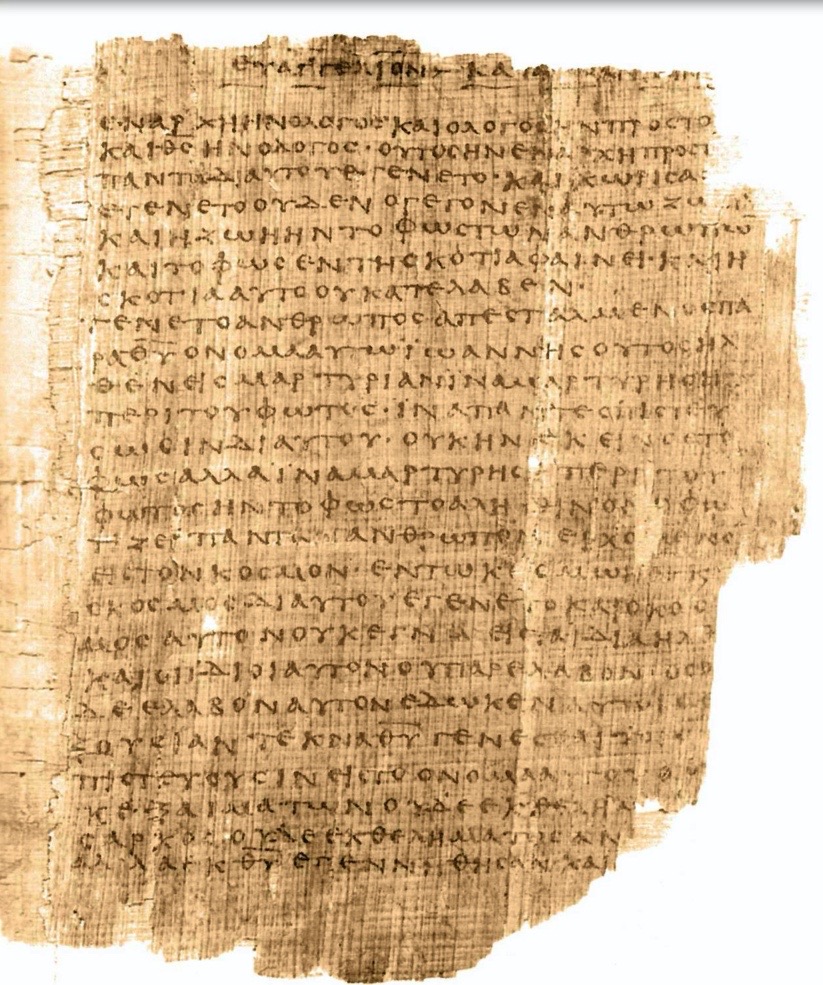 ΕΥΑΓΓΕΛΙΟΝ ΚΑ
ΕΝΑΡΧΗΗΝΟΛΟΓΟϹ ΚΑΙΟΛΟΓΟϹΗΝΠΡΟϹΤΟ
ΚΑΙΘ̅Ϲ̅ΗΝΟΛΟΓΟϹ·ΟΥΤΟϹΗΝΕΝΑΡΧΗΠΡΟϹΤ
ΠΑΝΤΑΔΙΑΥΤΟΥΕΓΕΝΕΤΟ·ΚΑΙΧΩΡΙϹΑ
ΕΓΕΝΕΤΟΟΥΔΕΝΟΓΕΓΟΝΕΝΕΝΑΥΤΩΖΩ
ΚΑΙΗΖΩΗΗΝΤΟΦΩϹΤΩΝΑΝΘΡΩΠΩ
ΚΑΙΤΟΦΩϹΕΝΤΗϹΚΟΤΙΑΦΑΙΝΕΙ·ΚΑΙΗ
ϹΚΟΤΙΑΑΥΤΟΟΥΚΑΤΕΛΑΒΕΝ·
ΓΕΝΕΤΟΑΝΘΡΩΠΟϹΑΠΕϹΤΑΛΜΕΝΟϹΠΑ
ΡΑΘ̅Υ̅ΟΝΟΜΑΑΥΤΩΪΩΑΝΝΗϹΟΥΤΟϹΗΛ
ΘΕΝΕΙϹΜΑΡΤΥΡΙΑΝΪΝΑΜΑΡΤΥΡΗϹΗ
ΠΕΡΙΤΟΥΦΩΤΟϹ·ΙΝΑΠΑΝΤΕϹΠΙϹΤΕΥ
ϹΩϹΙΝΔΙΑΥΤΟΥ·ΟΥΚΗΝΕΚΕΙΝΟϹΤΟ
ΦΩϹΑΛΛΑΪΝΑΜΑΡΤΥΡΗϹΗΠΕΡΙΤΟΥ
ΦΩΤΟϹΗΝΤΟΦΩϹΤΟΑΛΗΘΙΝΟΝΟΦΩ
ΤΙΖΕΙΠΑΝΤΑΑΝΘΡΩΠΟΝΕΡΧΟΜΕΝΟ
ΕΙϹΤΟΝΚΟϹΜΟΝ·ΕΝΤΩΚΟϹΜΩΗΝΚ
ΟΚΟϹΜΟϹΔΙΑΥΤΟΥΕΓΕΝΕΤΟΚΑΙΟΚΟϹ
ΜΟϹΑΥΤΟΝΟΥΚΕΓΝΩΕΙϹΤΑΙΔΙΑΗΛ
ΚΑΙΟΙΪΔΙΟΙΑΥΤΟΝΟΥΠΑΡΕΛΑΒΟΝ·ΟϹΟ
ΔΕΕΛΑΒΟΝΑΥΤΟΝΕΔΩΚΕΝΑΥΤΟΙϹΕ
ΞΟΥϹΙΑΝΤΕΚΝΑΘ̅Υ̅ΓΕΝΕϹΘΑΙΤΟΙϹ
ΠΙϹΤΕΥΟΥϹΙΝΕΙϹΤΟΟΝΟΜΑΑΥΤΟΥ·ΟΥ
ΚΕΞΑΙΜΑΤΩΝΟΥΔΕΕΚΘΕΛΗΜΑ
ϹΑΡΚΟϹΟΥΔΕΕΚΘΕΛΗΜΑΤΟϹΑΝ
ΑΛΛΑΕΚΘ̅Υ̅ΕΓΕΝΝΗΘΗϹΑΝΚΑΙ